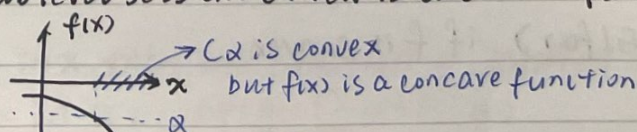 f(x)
Cα is convex
x but f(x) is a concave function
α